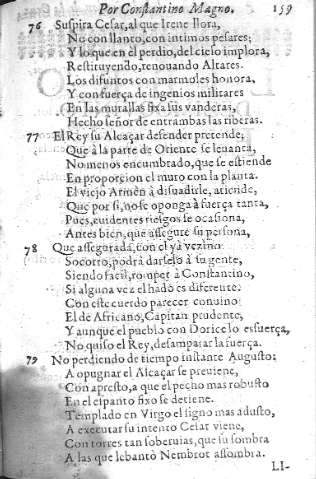 Por Constantino Magno. 159
76 Suspira Cesar, al que Irene llora,
No con llanto, con intimos pesares;
Y lo que en el perdio, del cielo implora,
Restituyendo, renouando Altares.
Los difuntos con marmoles honora,
Y con fuerça de ingenios militares
En las murallas fixa sus vanderas,
Hecho señor de entrambas las riberas.
77 El Rey su Alcaçar defender pretende;
Que à la parte de Oriente se leuanta,
No menos encumbrado, que se estiende
En proporcion el muro con la planta.
El viejo Armèn à disuadirle, atiende,
Que por si, no se oponga à fuerça tanta,
Pues, euidentes riesgos se ocasiona,
Antes bien, que assegure su persona,
78 Que assegurada, con el yà vezino
Socorro, podrà darselo à su gente,
Siendo facil, romper à Constantino,
Si alguna vez el hado es diferente.
Con este cuerdo parecer conuino
El de Africano, Capitan prudente,
Y aunque el pueblo con Doricelo esfuerça,
No quiso el Rey, desamparar la fuerça.
79 No perdiendo de tiempo instante Augusto;
A opugnar el Alcaçar se preuiene,
Con apresto, a que el pecho mas robusto
En el espanto fixo se detiene.
Templado en Virgo el signo mas adusto,
A executar su intento Cesar viene,
Con torres tan soberuias, que su sombra
A las que lebantò Nembrot assombra.
LI-